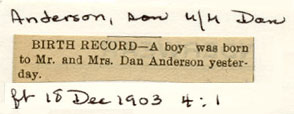 Anderson, son of M Dan
BIRTH RECORD—A boy was born
to Mr. and Mrs. Dan Anderson yester-
day.
ft 18 Dec 1903 4:1